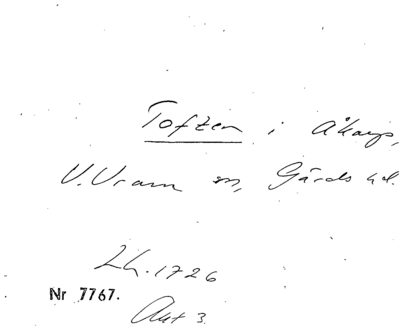 Toftzen i Åkarp,
V. Vram sn, Gärds hd.
Lh. 1726
Nr 7767.
Ant 3